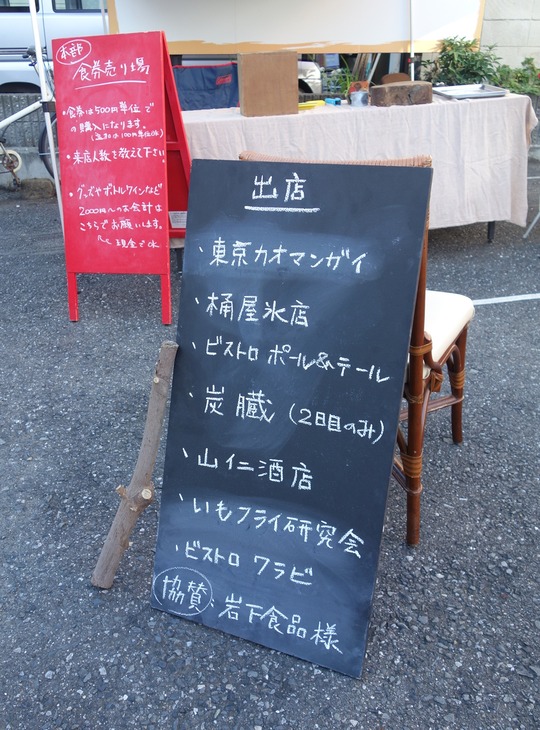 本部
食券売り場
・食券は500円単位で
の購入になります。
・来店人数を教えて下さい。
・グッズやボトルワインなど
2000円への会計は
こちらでお願いします。
現金でOK
出店
・東京カオマンガイ
・桶屋氷店
・ビストロ ポール&テール
・炭臓（2日目のみ）
・山仁酒店
・いもフライ研究会
・ビストロ ワラビ
協賛：岩下食品様